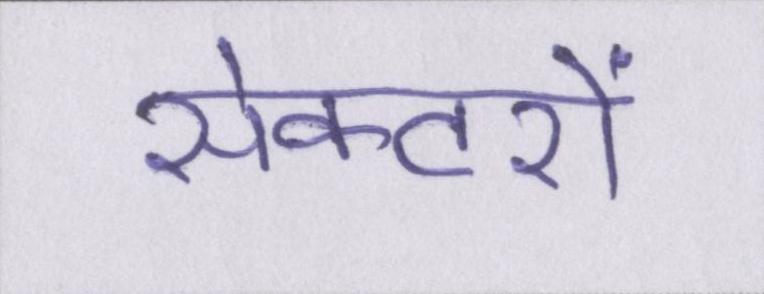 सेकटरों